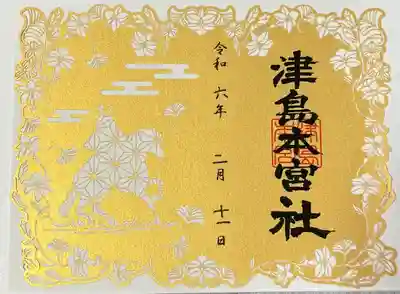 津島本宮社
令和六年 二月 十一日